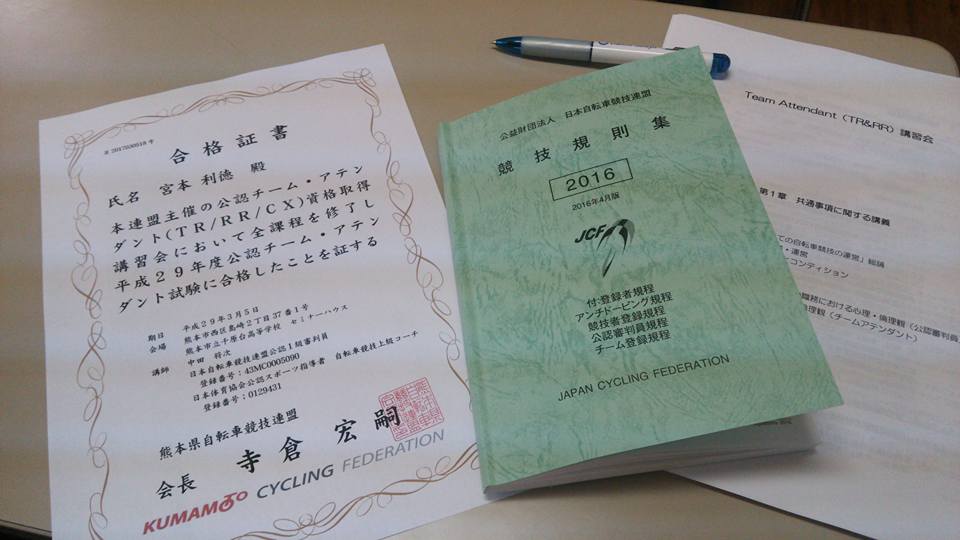 第2017030518号
合格証書
氏名 宮本 利徳 殿
本連盟主催の公認チーム・アテン
ダント(TR/RR/CX)資格取得
講習会において全課程を修了し
平成29年度公認チーム・アテン
ダント試験に合格したことを証する
期日 平成29年3月5日
会場 熊本市西区島崎2丁目37番1号
熊本市立千原台高等学校 セミナーハウス
講師 中田 将次
日本自転車競技連盟公認1級審判員
登録番号:43MC0005090
日本体育協会公認スポーツ指導者 自転車競技上級コーチ
登録番号:0129431
熊本県自転車競技連盟
会長 寺倉 宏嗣
KUMAMOTO CYCLING FEDERATION
公益財団法人 日本自転車競技連盟
競技規則集
2016
2016年4月版
JCF
付:登録者規程
アンチドーピング規程
競技者登録規程
公認審判員規程
チーム登録規程
JAPAN CYCLING FEDERATION
Team Attendant (TR&RR) 講習会
第1章 共通事項に関する講義
ての自転車競技の運営」総論
・運営
コンディション
職務における心理・倫理観(公認審判員
理観(チームアテンダント)